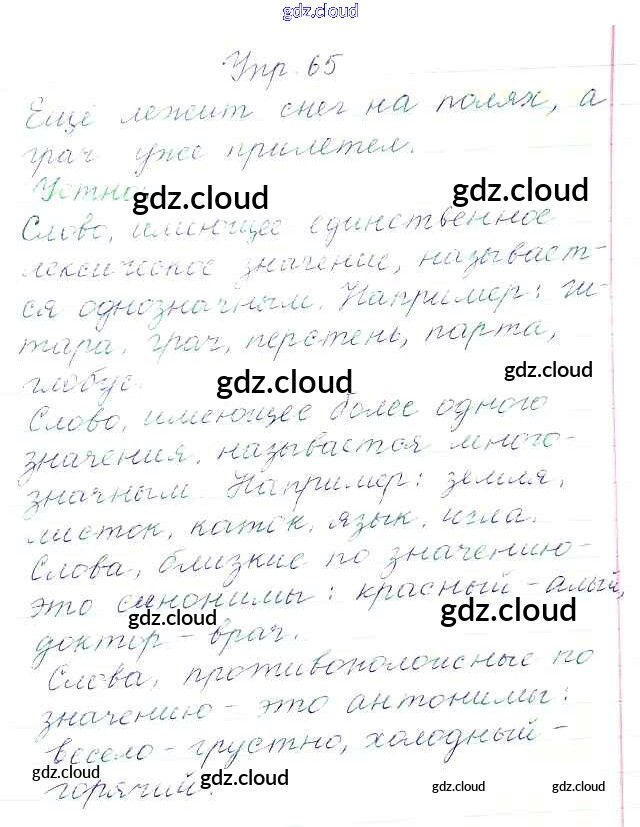 gdz.cloud
Упр. 65
Ещё лежит снег на полях, а
грач уже прилетел.
Устно.
gdz.cloud gdz.cloud
Слово, имеющее единственное
лексическое значение, называет-
ся однозначным. Например: ги-
тара, грач, перстень, парта,
gdz.cloud
глобус.
gdz.cloud
Слово, имеющее более одного
значения, называется много-
значным. Например: земля,
листок, каток, язык, игла.
Слова, близкие по значению -
это синонимы: красный - алый,
gdz.cloud gdz.cloud
доктор - врач.
Слова, противоположные по
значению - это антонимы:
весело - грустно, холодный -
gdz.cloud gdz.cloud gdz.cloud gdz.cloud
горячий.